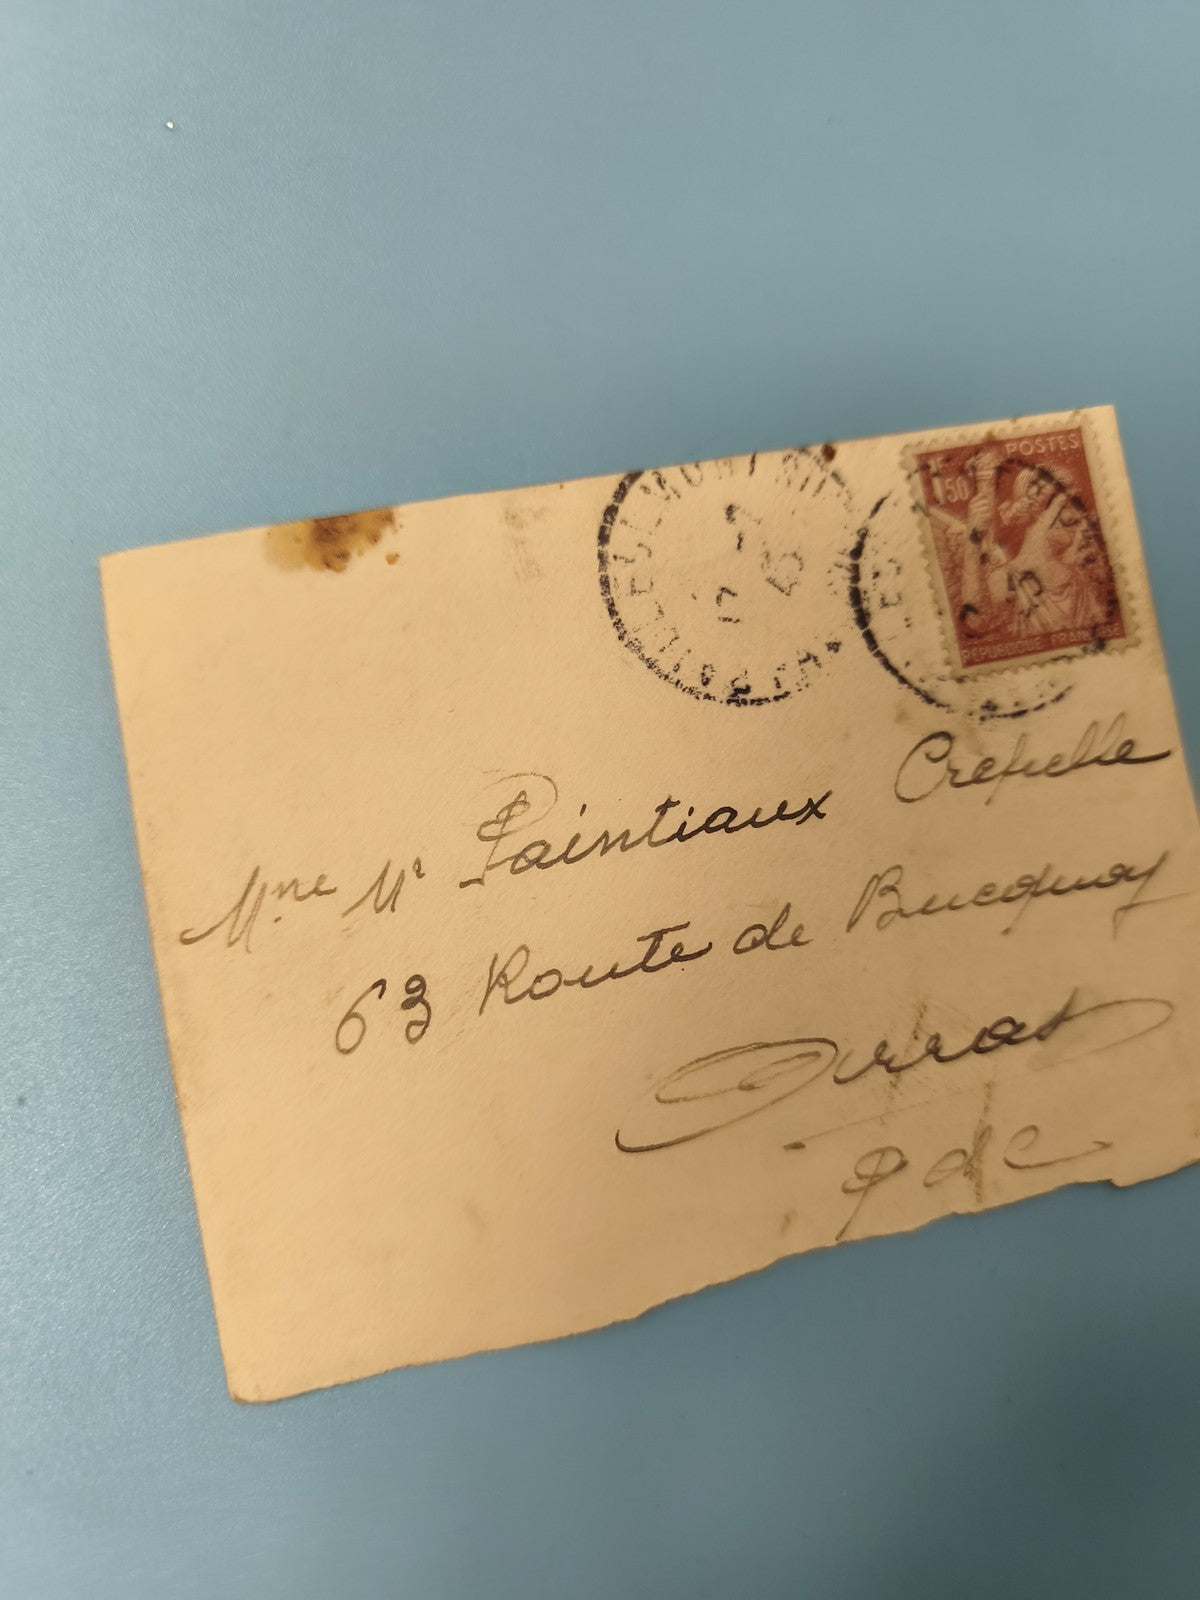 POSTES
1F50
RÉPUBLIQUE FRANÇAISE
Mme Mr Paintiaux Crepelle
63 Route de Bucquoy
Arras
P d C